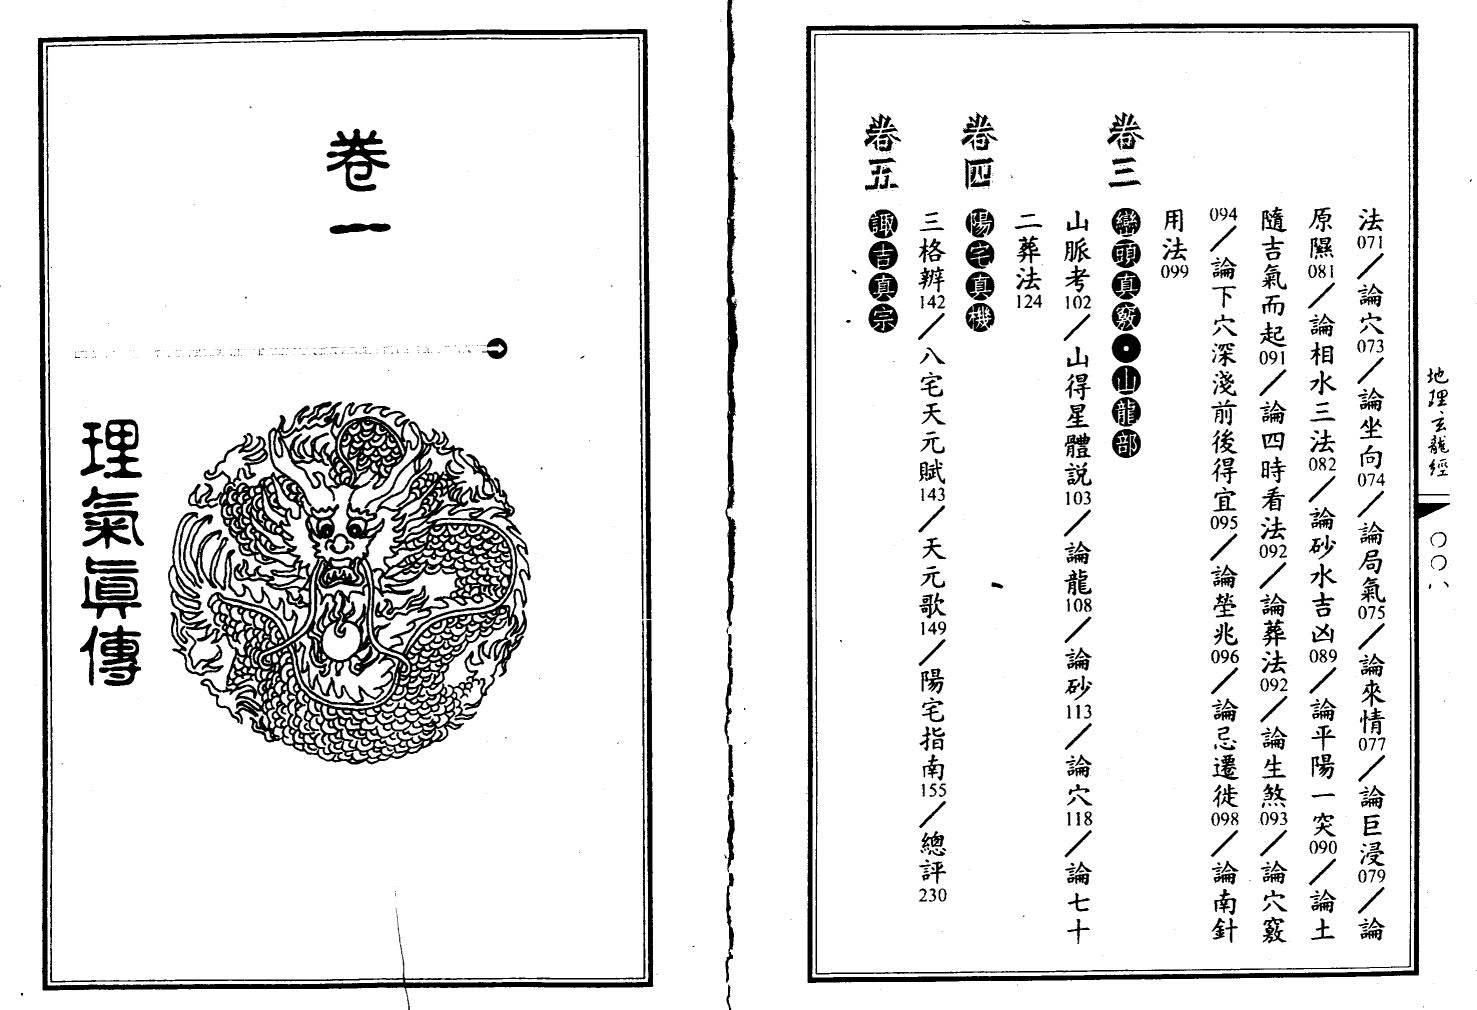 地理玄龍經
〇〇八
法071／論穴073／論坐向074／論局氣075／論來情077／論巨浸079／論
原隰081／論相水三法082／論砂水吉凶089／論平陽一突090／論土
隨吉氣而起091／論四時看法092／論葬法092／論生煞093／論穴竅
094／論下穴深淺前後得宜095／論塋兆096／論忌遷徙098／論南針
用法099
卷三 巒頭真竅•山龍部
山脈考102／山得星體説103／論龍108／論砂113／論穴118／論七十
二葬法124
卷四 陽宅真機
三格辨142／八宅天元賦143／天元歌149／陽宅指南155／總評230
卷五 諏吉真宗
卷一
理氣眞傳